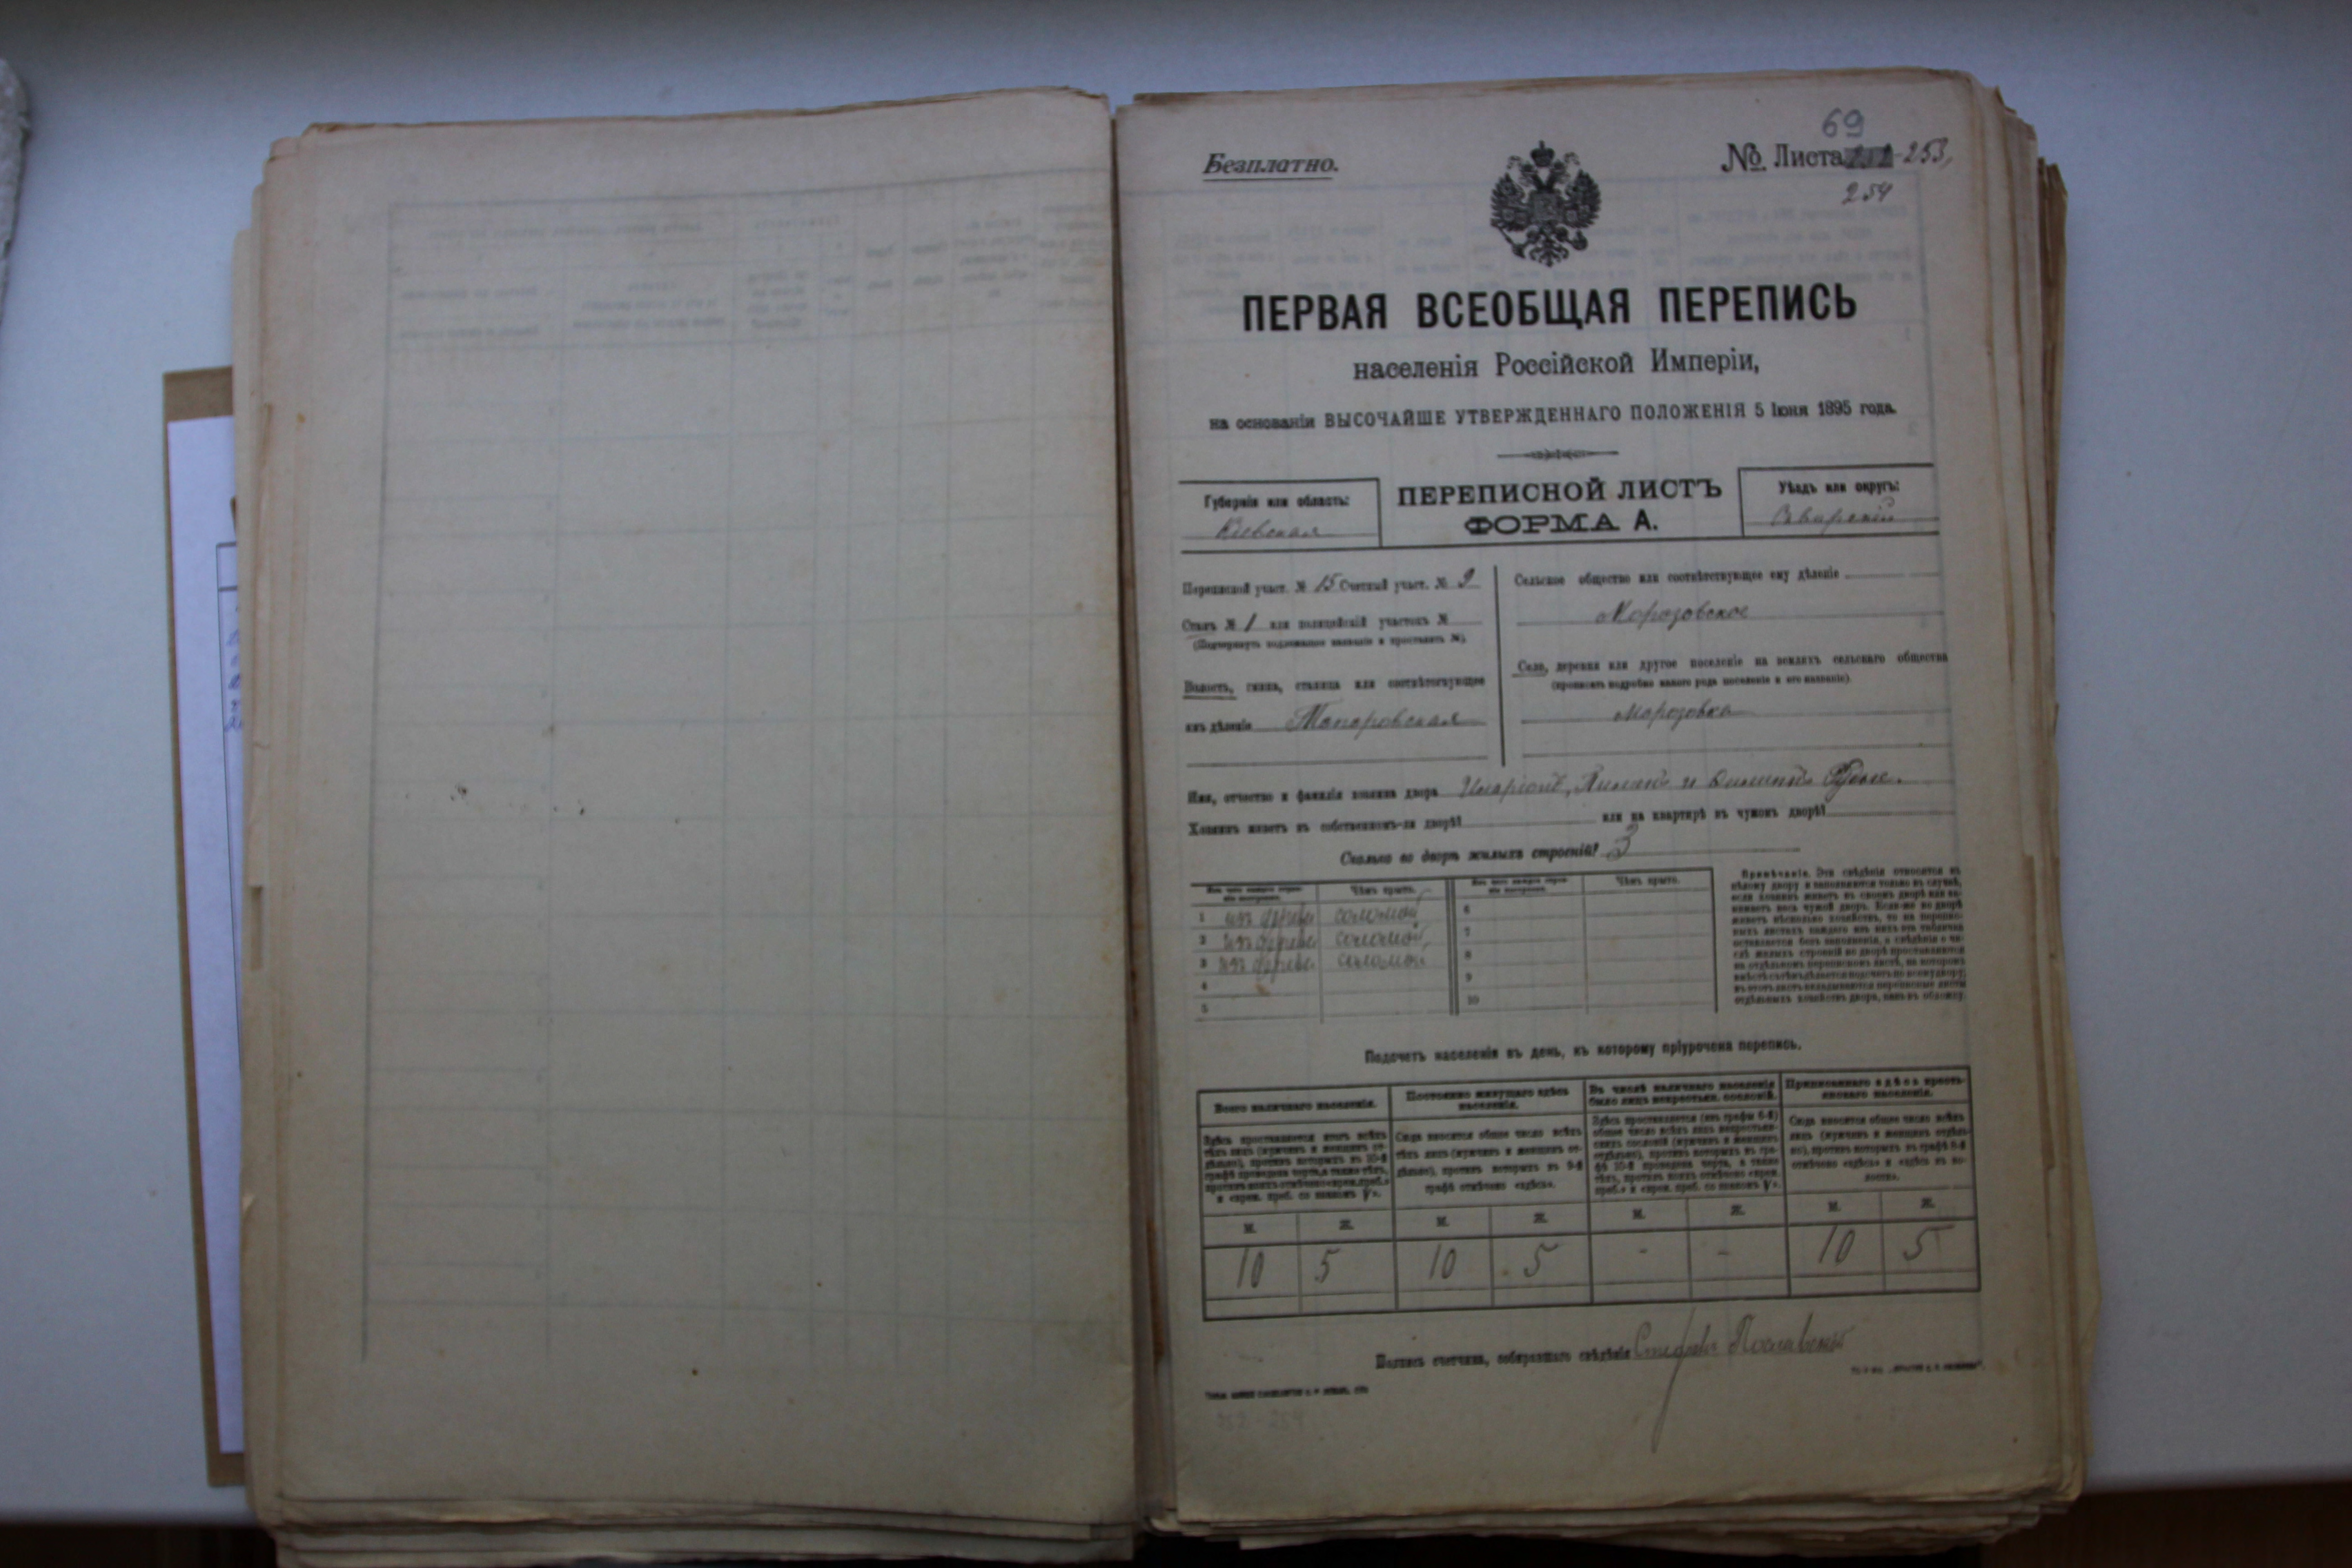 69
Безплатно.
№ Листа 253,
254
ПЕРВАЯ ВСЕОБЩАЯ ПЕРЕПИСЬ
населенія Россійской Имперіи,
на основаніи ВЫСОЧАЙШЕ УТВЕРЖДЕННАГО ПОЛОЖЕНІЯ 5 Іюня 1895 года.
Губернія или область:
Кіевская
ПЕРЕПИСНОЙ ЛИСТЪ
ФОРМА А.
Уѣздъ или округъ:
Сквирскій
Переписной участ. № 15 Счетный участ. № 9
Станъ № 1 или полицейскій участокъ №
(Подчеркнуть подлежащее названіе и проставить №).
Волость, гмина, станица или соотвѣтствующее
имъ дѣленіе
Сельское общество или соотвѣтствующее ему дѣленіе
Морозовское
Село, деревня или другое поселеніе на земляхъ сельскаго общества
(прописать подробно какого рода поселеніе и его названіе).
Морозовка
Имя, отчество и фамилія хозяина двора
Хозяинъ живетъ въ собственномъ-ли дворѣ? или на квартирѣ въ чужомъ дворѣ?
Сколько во дворѣ жилыхъ строеній? 3
Чѣмъ крыто. Чѣмъ крыто.
1 изъ дерева соломой 6
2 изъ дерева соломой 7
3 изъ дерева соломой 8
4 9
5 10
Примѣчаніе. Эти свѣдѣнія относятся къ
цѣлому двору и заполняются только въ случаѣ,
если хозяинъ живетъ въ своемъ дворѣ или за-
нимаетъ весь чужой дворъ. Если-же во дворѣ
живетъ нѣсколько хозяйствъ, то на перепис-
ныхъ листахъ каждаго изъ нихъ эта табличка
оставляется безъ заполненія, а свѣдѣнія о чи-
слѣ жилыхъ строеній во дворѣ проставляются
на отдѣльномъ переписномъ листѣ, на которомъ
вмѣстѣ съ тѣмъ дѣлается подсчетъ по всему двору;
въ этотъ листъ вкладываются переписные листы
отдѣльныхъ хозяйствъ двора, какъ въ обложку.
Подсчетъ населенія въ день, къ которому пріурочена перепись.
Всего наличнаго населенія.
Постоянно живущаго здѣсь
населенія.
Въ числѣ наличнаго населенія
было лицъ некрестьян. сословій.
Приписаннаго здѣсь кресть-
янскаго населенія.
Здѣсь проставляется итогъ всѣхъ
тѣхъ лицъ (мужчинъ и женщинъ от-
дѣльно), противъ которыхъ въ 10-й
графѣ проведена черта, а также тѣхъ,
противъ коихъ отмѣчено «врем. преб.»
и «врем. преб. со знакомъ V».
Сюда вносится общее число всѣхъ
тѣхъ лицъ (мужчинъ и женщинъ от-
дѣльно), противъ которыхъ въ 9-й
графѣ отмѣчено «здѣсь».
Здѣсь проставляется (изъ графы 6-й)
общее число всѣхъ лицъ некрестьян-
скихъ сословій (мужчинъ и женщинъ
отдѣльно), противъ которыхъ въ гра-
фѣ 10-й проведена черта, а также
тѣхъ, противъ коихъ отмѣчено «врем.
преб.» и «врем. преб. со знакомъ V».
Сюда вносится общее число всѣхъ
лицъ (мужчинъ и женщинъ отдѣль-
но), противъ которыхъ въ графѣ 8-й
отмѣчено «здѣсь» и «здѣсь въ во-
лости».
М. Ж. М. Ж. М. Ж. М. Ж.
10 5 10 5 - - 10 5
Подпись счетчика, собиравшаго свѣдѣнія